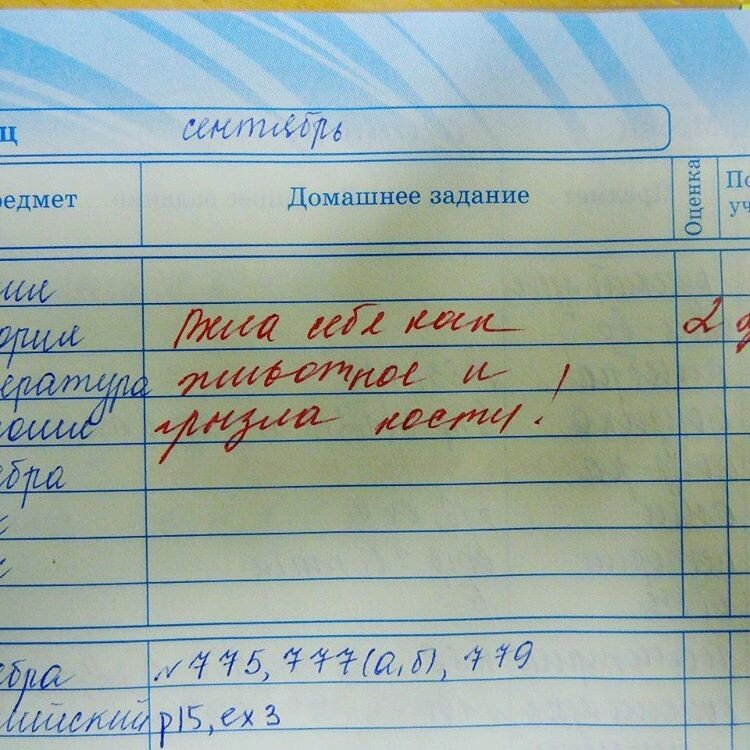 ц сентябрь
редмет Домашнее задание Оценка По
уч
ория Вела себя как 2
ература животное и
грызла кости!
ебра
ебра №775, 777(а,б), 779
лийский p15, ex 3